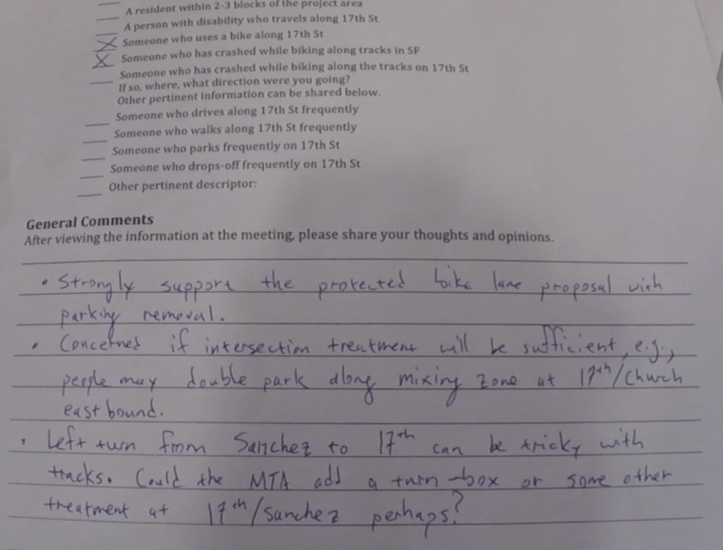 A resident within 2-3 blocks of the project area
A person with disability who travels along 17th St
X Someone who uses a bike along 17th St
X Someone who has crashed while biking along tracks in SF
Someone who has crashed while biking along the tracks on 17th St
If so, where, what direction were you going?
Other pertinent information can be shared below.
Someone who drives along 17th St frequently
Someone who walks along 17th St frequently
Someone who parks frequently on 17th St
Someone who drops-off frequently on 17th St
Other pertinent descriptor:
General Comments
After viewing the information at the meeting, please share your thoughts and opinions.
• Strongly support the protected bike lane proposal with
parking removal.
• Concerned if intersection treatment will be sufficient, e.g.,
people may double park along mixing zone at 17th/Church
eastbound.
• Left turn from Sanchez to 17th can be tricky with
tracks. Could the MTA add a turn-box or some other
treatment at 17th/Sanchez perhaps?